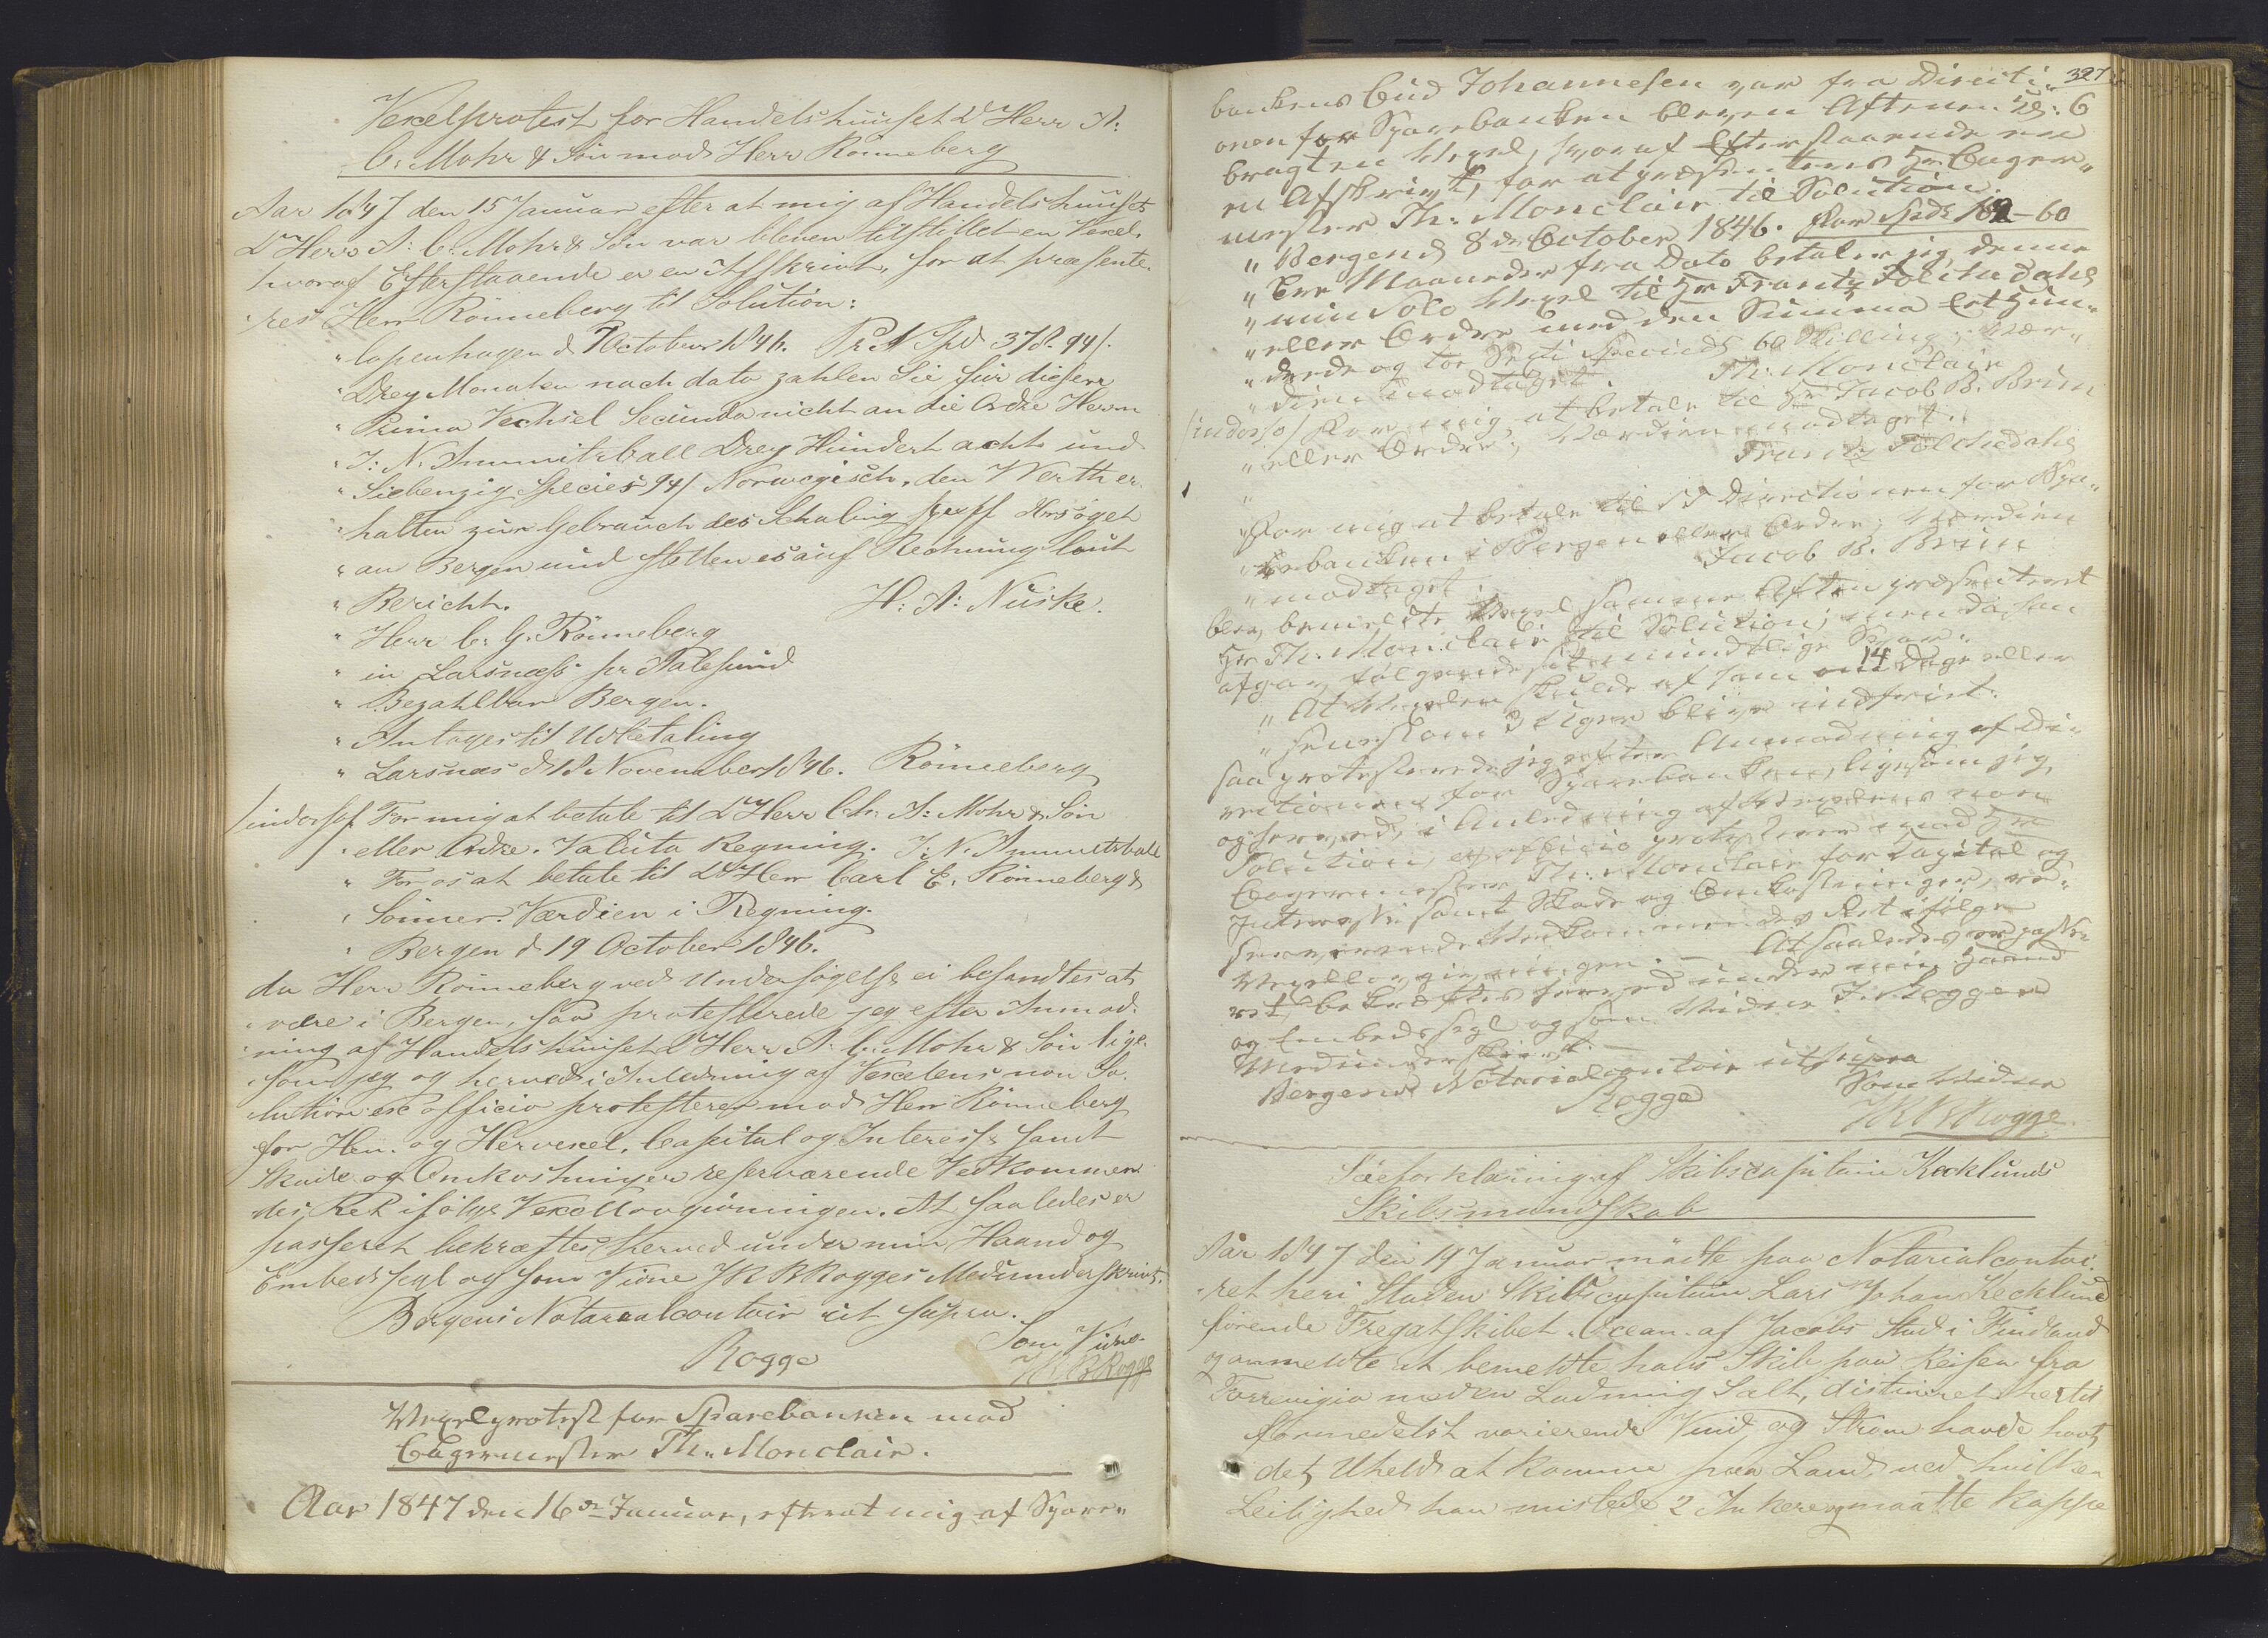 Vexelprotest for Handelshuuset D'Herr A:
C: Mohr & Søn mod Herr Rönneberg
Aar 1847 den 15 Januar efter at mig af Handelshuuset
D'Herr A: C: Mohr & Søn var bleven tilstillet en Vexel,
hvoraf Efterstaaende er en Afskrivt, for at præsente-
res Herr Rönneberg til Solution:
" Copenhagen d 7 October 1846. Spd 378. 94 s.
" Drey Monaten nach dato zahlen Sie für diesen
" Prima Vechsel Secunda nicht an die Ordre Herrn
" J: N: Ammitzball Drey Hundert acht und
" Siebenzig Species 94 s Norwegisch, den Werth er-
" halten zur Gebrauch des
" an Bergen und stellen es auf Rechnung laut
" Bericht. H: A: Nüske.
" Herr C: G: Rönneberg
" in Larsnæss pr Aalesund
" Bezahlbar Bergen.
" Antages til Udbetaling
" Larsnæs d 18 November 1846. Rönneberg
indorso/ For mig at betale til D'Herr Chr. A: Mohr & Søn
" eller Ordre. Valuta Regning. J: N. Ammitzball
" For os at betale til D'Herr Carl E. Rönneberg &
" Sönner. Værdien i Regning.
" Bergen d 19 October 1846.
da Herr Rönneberg ved Undersøgelse ei befandtes at
være i Bergen, saa protesterede jeg efter Anmod-
ning af Handelshuuset D'Herr A: C: Mohr & Søn lige-
som jeg og herved i Anledning af Vexelens non So-
lution ex officio protesterer mod Herr Rönneberg
for Hen- og Hervexel, Capital og Interesse samt
Skade og Omkostninger reserverende Vedkommen-
des Ret ifølge Vexellovgivningen. At saaledes er
passeret bekræftes herved under min Haand og
Embedssegl og som Vidne J K B Rogges Medunderskrivt.
Bergens Notarialcontoir ut supra.
Rogge Som Vidne
J K B Rogge
Vexelprotest for Sparebanken mod
Bagermester Th: Monclair.
Aar 1847 den 16de Januar, efterat mig af Spare-
327
bankens Bud Johannesen var fra Directi-
onen for Sparebanken bleven Aftenen Kl: 6
bragt en Vexel, hvoraf Efterstaaende er
en Afskrivt, for at præsenteres Hr Bager-
mester Th: Monclair til Solution.
" Bergen d 8de October 1846. For Spd 162-60
" Tre Maaneder fra Dato betaler jeg denne
" min Solo Vexel til Hr Frantz Dahl
" eller Ordre med den Summa Et Hun-
" drede og to Speciedlr 60 Skilling; Vær-
" dien modtaget. Th: Monclair
indorso/ For mig at betale til Hr Jacob B. Brun
" eller Ordre; Værdien modtaget.
" Frantz Dahl
" For mig at betale til Directionen for Spa-
" rebanken i Bergen eller Ordre; Værdien
" modtaget. Jacob B. Brun
blev bemeldte Vexel samme Aften præsenteret
Hr Th: Monclair til Solution; men da han
afgav følgende mundtlige Svar:
" At Vexelen skulde af ham om 14 Dage eller
" senest om 3 Uger blive indfriet.
saa protesterede jeg efter Anmodning af Di-
rectionen for Sparebanken, ligesom jeg
og herved, i Anledning af Vexelens non
Solution, ex officio protesterer mod Hr
Bagermester Th: Monclair for Capital og
Interesse samt Skade og Omkostninger, re-
serverende Vedkommendes Ret ifølge
Vexellovgivningen. — At saaledes er passe-
ret bekræftes herved under min Haand
og Embedssegl og som Vidne J K Rogges
Medunderskrivt. —
Bergens Notarialcontoir ut supra
Rogge Som Vidne
J K B Rogge.
Søeforklaring af Skibscapitain Kecklunds
Skibsmandskab
Aar 1847 den 19 Januar mødte paa Notarialcontoi-
ret heri Staden Skibscapitain Lars Johan Kecklund
førende Fregatskibet Ocean af Jacobs Stad i Findland
og anmeldte at bemeldte hans Skib paa Reisen fra
Torrevigia med en Ladning Salt, distineret hertil
formedelst varierende Vind og Strøm havde havt
det Uheld at komme paa Land, ved hvilken
Leilighed han mistede 2 Ankere og maatte kappe